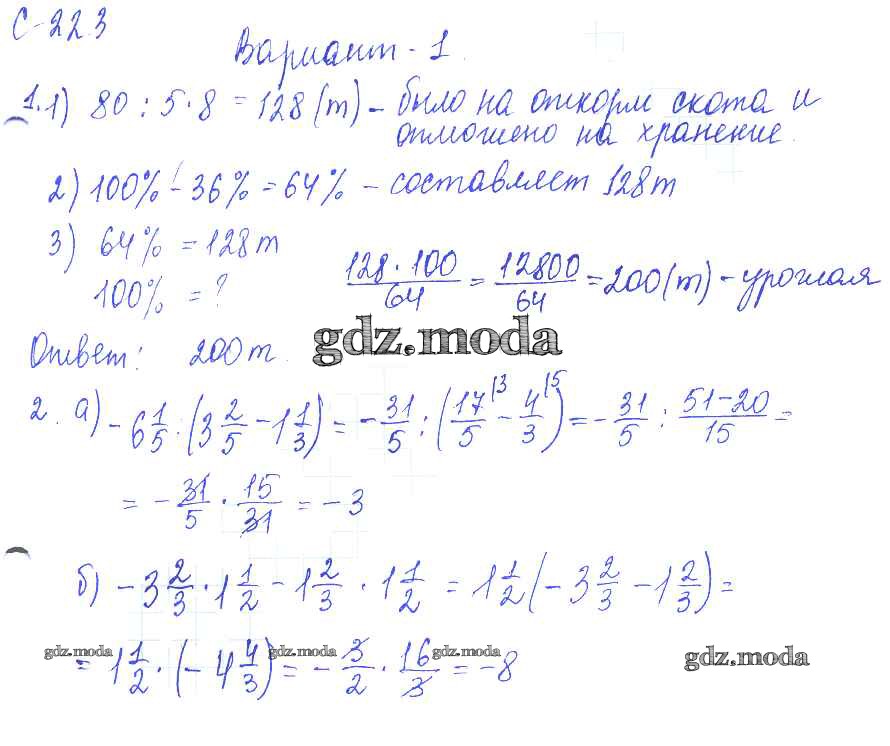 С-22.3
Вариант-1.
1. 1) 80 : 5 · 8 = 128 (т) - было на откорм скота и
отмошено на хранение.
2) 100% - 36% = 64% - составляет 128 т
3) 64% = 128 т
100% = ?
128 · 100 / 64 = 12800 / 64 = 200 (т) - урожая
Ответ: 200 т.
gdz.moda
2. а) -6 1/5 : (3 2/5 - 1 1/3) = - 31/5 : (17/5 |3 - 4/3 |5) = - 31/5 : 51-20/15 =
= - 31/5 · 15/31 = -3
б) -3 2/3 · 1 1/2 - 1 2/3 · 1 1/2 = 1 1/2 (-3 2/3 - 1 2/3) =
gdz.moda gdz.moda gdz.moda gdz.moda
= 1 1/2 · (-4 4/3) = - 3/2 · 16/3 = -8